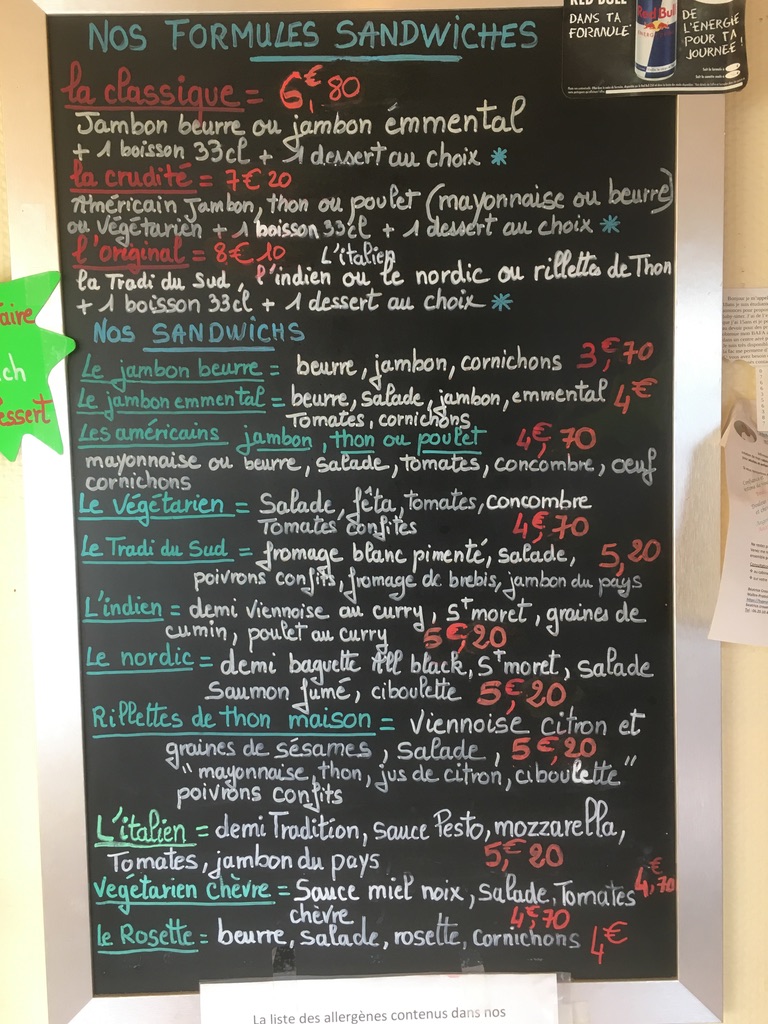 NOS FORMULES SANDWICHES
RED BULL
DANS TA
FORMULE
Red Bull
DE
L'ÉNERGIE
POUR TA
JOURNÉE !
la classique = 6,€80
Jambon beurre ou jambon emmental
+ 1 boisson 33cl + 1 dessert au choix *
la crudité = 7€20
Américain Jambon, thon ou poulet (mayonnaise ou beurre)
ou Végétarien + 1 boisson 33cl + 1 dessert au choix *
l'original = 8€10 L'italien
la Tradi du Sud, l'indien ou le nordic ou rillettes de Thon
+ 1 boisson 33cl + 1 dessert au choix *
NOS SANDWICHS
Le jambon beurre = beurre, jambon, cornichons 3,€70
Le jambon emmental = beurre, salade, jambon, emmental 4€
Tomates, cornichons
Les américains jambon, thon ou poulet 4€,70
mayonnaise ou beurre, salade, tomates, concombre, oeuf
cornichons
Le Végétarien = Salade, fêta, tomates, concombre
Tomates confites 4€,70
Le Tradi du Sud = fromage blanc pimenté, salade, 5,20
poivrons confits, fromage de brebis, jambon du pays
L'indien = demi viennoise au curry, St moret, graines de
cumin, poulet au curry 5€,20
Le nordic = demi baguette All black, St moret, salade
Saumon fumé, ciboulette 5€,20
Rillettes de thon maison = Viennoise citron et
graines de sésames, salade, 5€,20
"mayonnaise, thon, jus de citron, ciboulette"
poivrons confits
L'italien = demi Tradition, sauce Pesto, mozzarella,
Tomates, jambon du pays 5,€20
Végétarien chèvre = Sauce miel noix, salade, Tomates 4,€70
chèvre 4€,70
le Rosette = beurre, salade, rosette, cornichons 4€
La liste des allergènes contenus dans nos